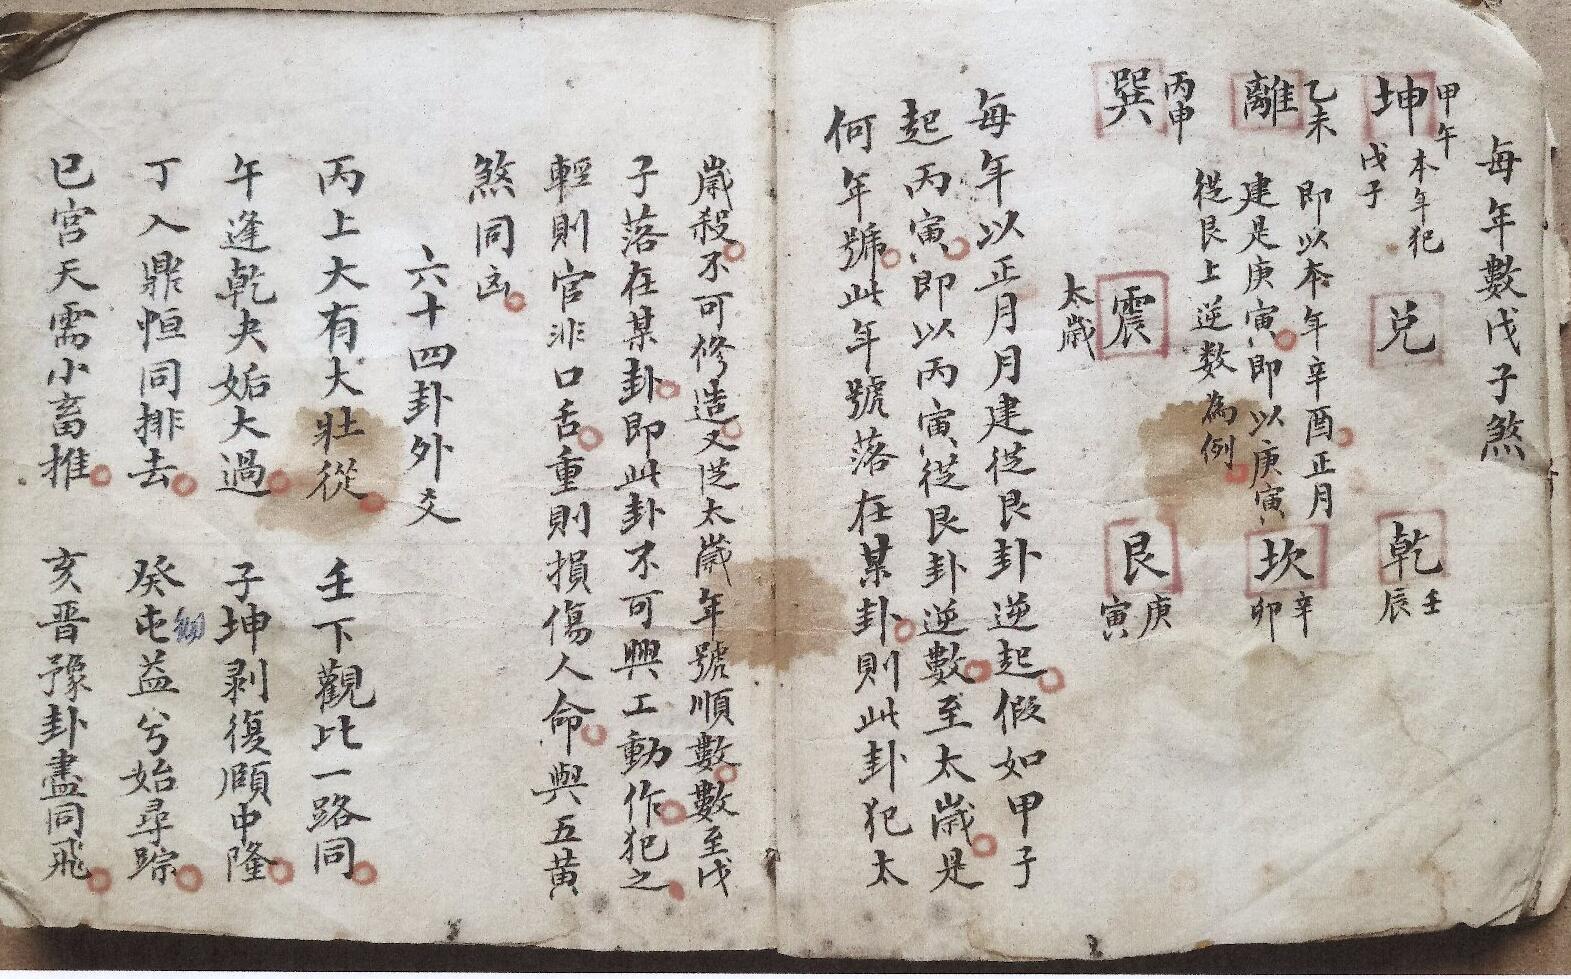 每年數戊子煞
坤
甲午
本年犯
戊子
兌
乾
壬
辰
離
乙未
即以本年辛酉正月
建是庚寅即以庚寅
從艮上逆数為例
坎
辛
卯
巽
丙申
震
太歲
艮
庚
寅
每年以正月月建從艮卦逆起假如甲子
起丙寅即以丙寅從艮卦逆數至太歲是
何年號此年號落在某卦則此卦犯太
歲殺不可修造又從太歲年號順數數至戊
子落在某卦即此卦不可興工動作犯之
輕則官非口舌重則損傷人命與五黃
煞同凶
六十四卦外爻
丙上大有大壯從 壬下觀比一路同
午逢乾夬姤大過 子坤剥復頤中隆
丁入鼎恒同排去 癸屯益兮始尋踪
巳宮天需小畜推 亥晋豫卦盡同飛